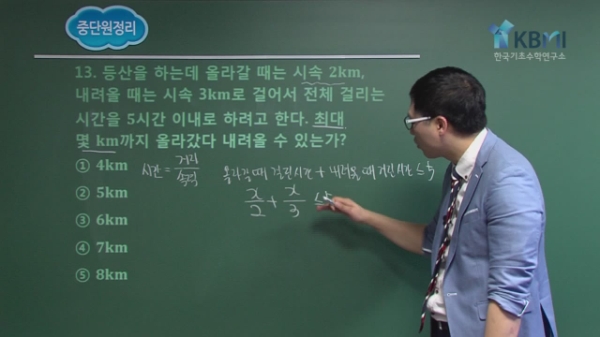 중단원정리
KBMI
한국기초수학연구소
13. 등산을 하는데 올라갈 때는 시속 2km,
내려올 때는 시속 3km로 걸어서 전체 걸리는
시간을 5시간 이내로 하려고 한다. 최대
몇 km까지 올라갔다 내려올 수 있는가?
① 4km
시간 = 거리/속력
올라갈 때 걸린시간 + 내려올 때 걸린시간 ≤ 5
x/2 + x/3 ≤ 5
② 5km
③ 6km
④ 7km
⑤ 8km